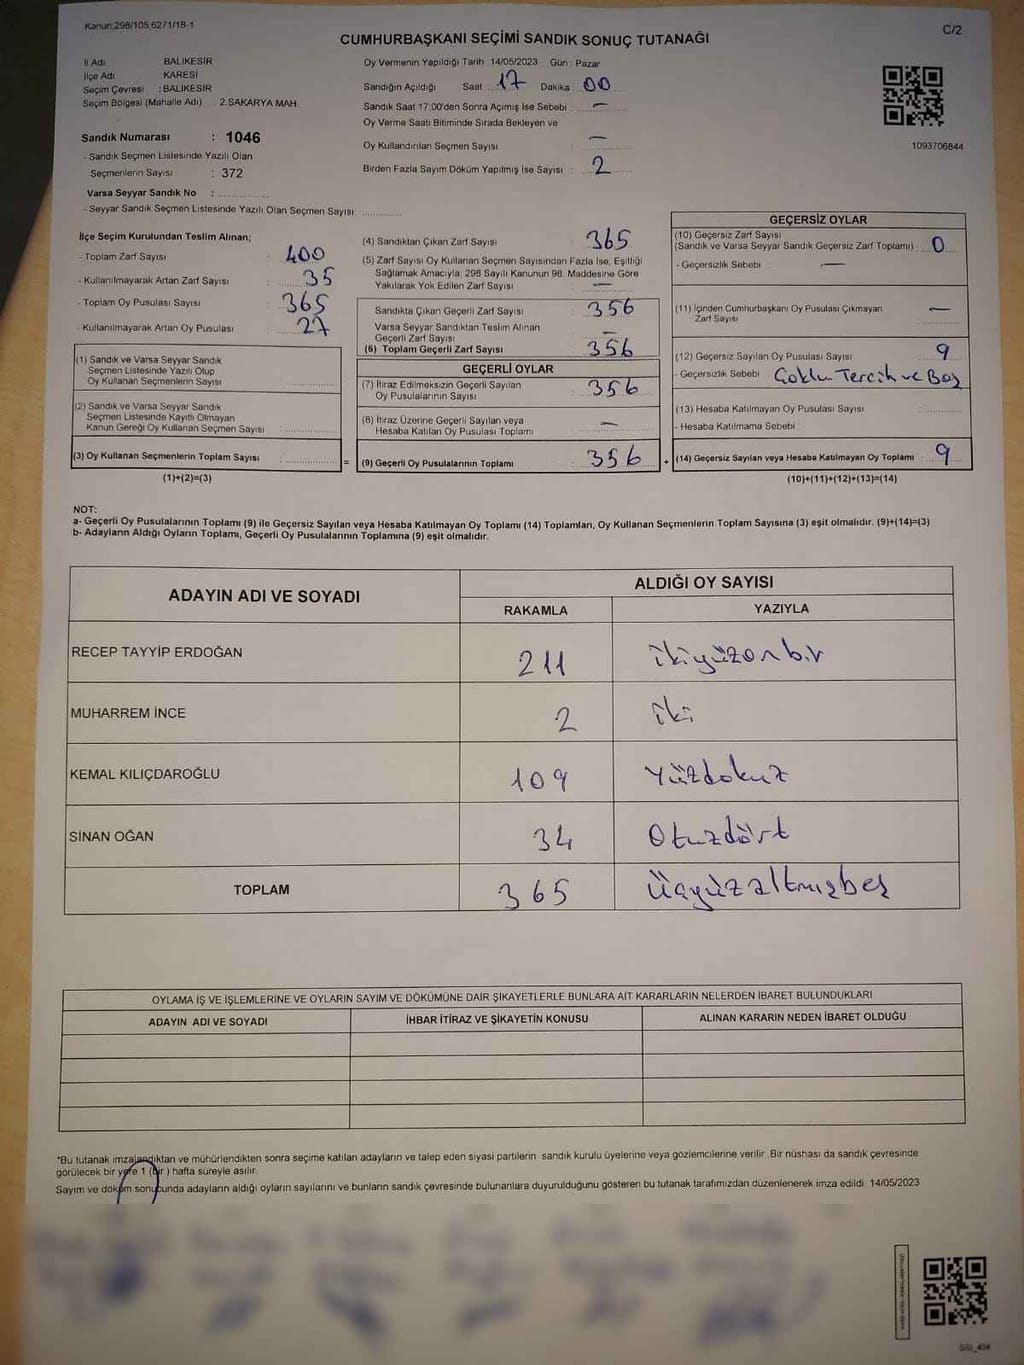 Kanun:298/105,6271/18-1
C/2
CUMHURBAŞKANI SEÇİMİ SANDIK SONUÇ TUTANAĞI
İl Adı BALIKESİR
İlçe Adı KARESİ
Seçim Çevresi : BALIKESİR
Seçim Bölgesi (Mahalle Adı) : 2.SAKARYA MAH.
Sandık Numarası : 1046
- Sandık Seçmen Listesinde Yazılı Olan
Seçmenlerin Sayısı : 372
Varsa Seyyar Sandık No :
- Seyyar Sandık Seçmen Listesinde Yazılı Olan Seçmen Sayısı:
Oy Vermenin Yapıldığı Tarih : 14/05/2023 Gün : Pazar
Sandığın Açıldığı Saat 17 Dakika 00
Sandık Saat 17:00'den Sonra Açımış İse Sebebi : —
Oy Verme Saati Bitiminde Sırada Bekleyen ve
Oy Kullandırılan Seçmen Sayısı : —
Birden Fazla Sayım Döküm Yapılmış İse Sayısı : 2
1093706844
İlçe Seçim Kurulundan Teslim Alınan;
- Toplam Zarf Sayısı : 400
- Kullanılmayarak Artan Zarf Sayısı : 35
- Toplam Oy Pusulası Sayısı : 365
- Kullanılmayarak Artan Oy Pusulası : 27
(1) Sandık ve Varsa Seyyar Sandık
Seçmen Listesinde Yazılı Olup
Oy Kullanan Seçmenlerin Sayısı :
(2) Sandık ve Varsa Seyyar Sandık
Seçmen Listesinde Kayıtlı Olmayan
Kanun Gereği Oy Kullanan Seçmen Sayısı :
(3) Oy Kullanan Seçmenlerin Toplam Sayısı :
(1)+(2)=(3)
(4) Sandıktan Çıkan Zarf Sayısı : 365
(5) Zarf Sayısı Oy Kullanan Seçmen Sayısından Fazla İse, Eşitliği
Sağlamak Amacıyla, 298 Sayılı Kanunun 98. Maddesine Göre
Yakılarak Yok Edilen Zarf Sayısı : —
Sandıkta Çıkan Geçerli Zarf Sayısı : 356
Varsa Seyyar Sandıktan Teslim Alınan
Geçerli Zarf Sayısı : —
(6) Toplam Geçerli Zarf Sayısı : 356
GEÇERLİ OYLAR
(7) İtiraz Edilmeksizin Geçerli Sayılan
Oy Pusulalarının Sayısı : 356
(8) İtiraz Üzerine Geçerli Sayılan veya
Hesaba Katılan Oy Pusulası Toplamı : —
= (9) Geçerli Oy Pusulalarının Toplamı : 356
GEÇERSİZ OYLAR
(10) Geçersiz Zarf Sayısı
(Sandık ve Varsa Seyyar Sandık Geçersiz Zarf Toplamı) : 0
- Geçersizlik Sebebi : —
(11) İçinden Cumhurbaşkanı Oy Pusulası Çıkmayan
Zarf Sayısı : —
(12) Geçersiz Sayılan Oy Pusulası Sayısı : 9
- Geçersizlik Sebebi : Çoklu Tercih ve Boş
(13) Hesaba Katılmayan Oy Pusulası Sayısı :
- Hesaba Katılmama Sebebi :
+ (14) Geçersiz Sayılan veya Hesaba Katılmayan Oy Toplamı : 9
(10)+(11)+(12)+(13)=(14)
NOT:
a- Geçerli Oy Pusulalarının Toplamı (9) ile Geçersiz Sayılan veya Hesaba Katılmayan Oy Toplamı (14) Toplamları, Oy Kullanan Seçmenlerin Toplam Sayısına (3) eşit olmalıdır. (9)+(14)=(3)
b- Adayların Aldığı Oyların Toplamı, Geçerli Oy Pusulalarının Toplamına (9) eşit olmalıdır.
ADAYIN ADI VE SOYADI
ALDIĞI OY SAYISI
RAKAMLA YAZIYLA
RECEP TAYYİP ERDOĞAN 211 ikiyüzonbir
MUHARREM İNCE 2 iki
KEMAL KILIÇDAROĞLU 109 Yüzdokuz
SİNAN OĞAN 34 Otuzdört
TOPLAM 365 Üçyüzaltmışbeş
OYLAMA İŞ VE İŞLEMLERİNE VE OYLARIN SAYIM VE DÖKÜMÜNE DAİR ŞİKAYETLERLE BUNLARA AİT KARARLARIN NELERDEN İBARET BULUNDUKLARI
ADAYIN ADI VE SOYADI İHBAR İTİRAZ VE ŞİKAYETİN KONUSU ALINAN KARARIN NEDEN İBARET OLDUĞU
*Bu tutanak imzalandıktan ve mühürlendikten sonra seçime katılan adayların ve talep eden siyasi partilerin sandık kurulu üyelerine veya gözlemcilerine verilir. Bir nüshası da sandık çevresinde
görülecek bir yere 1 (bir) hafta süreyle asılır.
Sayım ve döküm sonucunda adayların aldığı oyların sayılarını ve bunların sandık çevresinde bulunanlara duyurulduğunu gösteren bu tutanak tarafımızdan düzenlenerek imza edildi. 14/05/2023